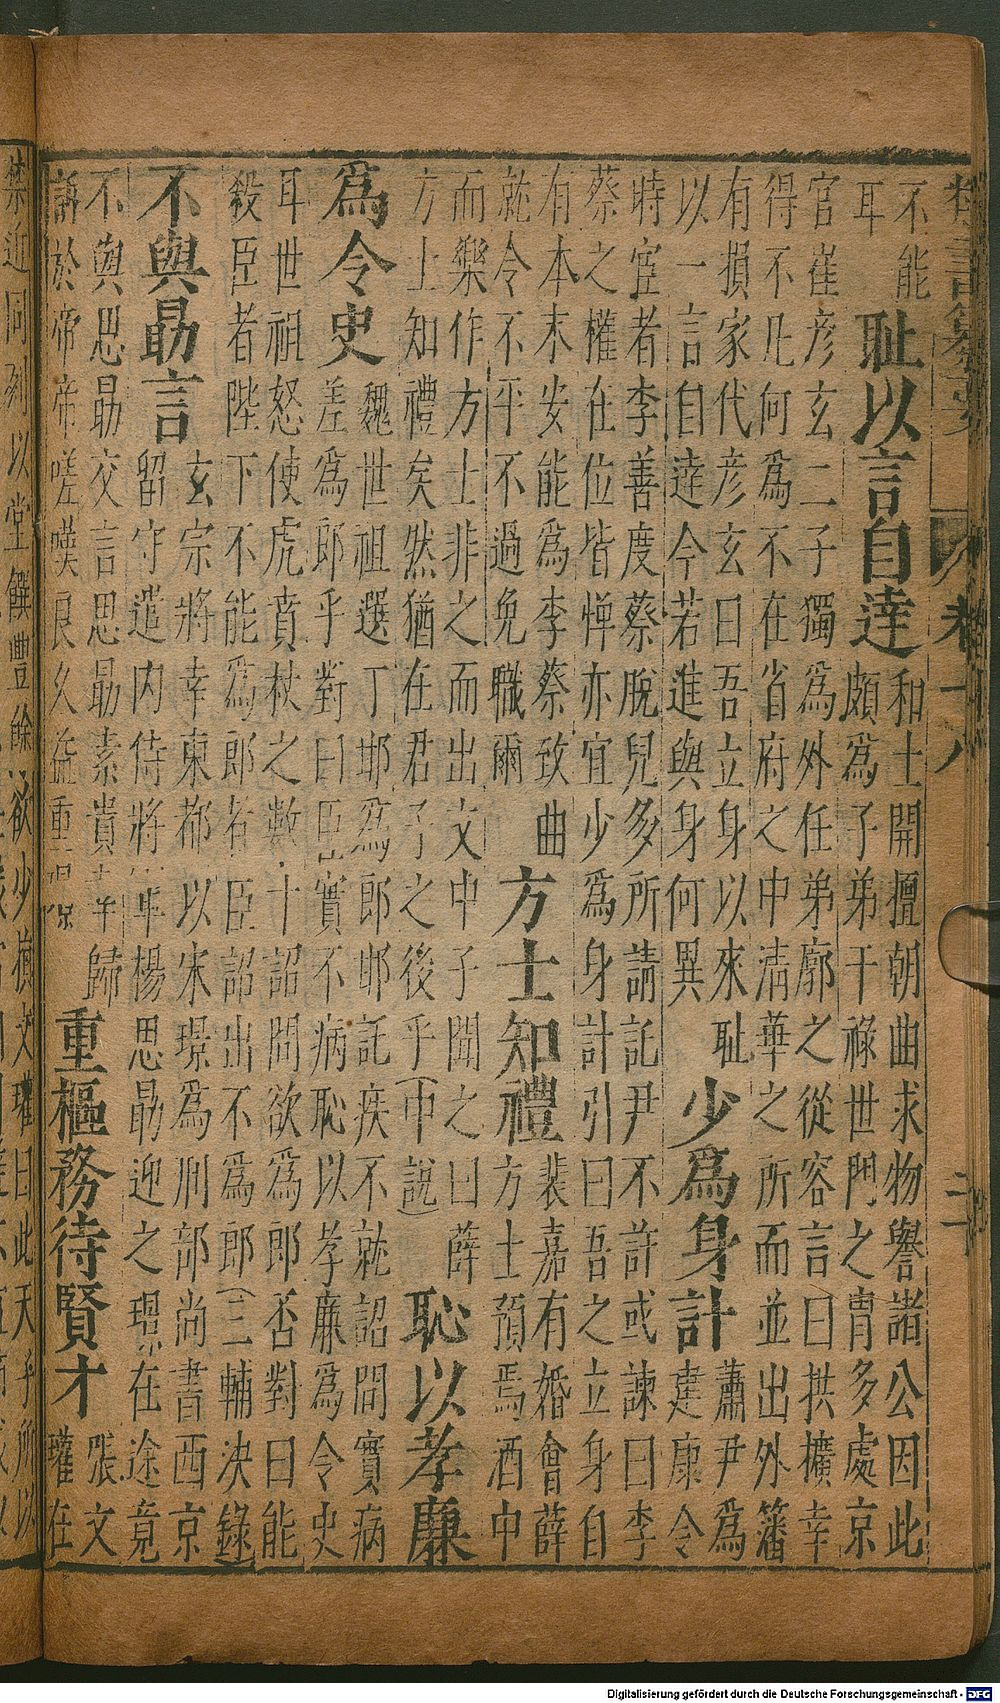 類書纂要 卷十八 二十
不能
耳
耻以言自達
和士開擅朝曲求物譽諸公因此
頗爲子弟干祿世門之胄多處京
官崔彦玄二子獨爲外任弟廓之從容言曰拱擴幸
得不凡何爲不在省府之中清華之所而並出外籓
有損家代彦玄曰吾立身以來耻
以一言自達今若進與身何異
少爲身計
蕭尹爲
建康令
時宦者李善度蔡脫兒多所請託尹不許或諫曰李
蔡之權在位皆憚亦宜少爲身計引曰吾之立身自
有本末安能爲李蔡致曲
就令不平不過免職爾
方士知禮
裴嘉有婚會薛
方士預焉酒中
而樂作方士非之而出文中子聞之曰薛
方士知禮矣然猶在君子之後乎(中說)
恥以孝廉
爲令史
魏世祖選丁邯爲郎邯託疾不就詔問實病
羞爲郎乎對曰臣實不病恥以孝廉爲令史
耳世祖怒使虎賁杖之數十詔問欲爲郎否對曰能
殺臣者陛下不能爲郎者臣詔出不爲郎(三輔決錄)
不與勗言
玄宗將幸東都以宋璟爲刑部尚書西京
留守遣內侍將軍楊思勗迎之璟在途竟
不與思勗交言思勗素貴幸歸
訴於帝帝嗟嘆良久益重璟
重樞務待賢才
張文
瓘在
禁近同列以堂饌豐餘欲少損文瓘曰此天子所以
Digitalisierung gefördert durch die Deutsche Forschungsgemeinschaft - DFG